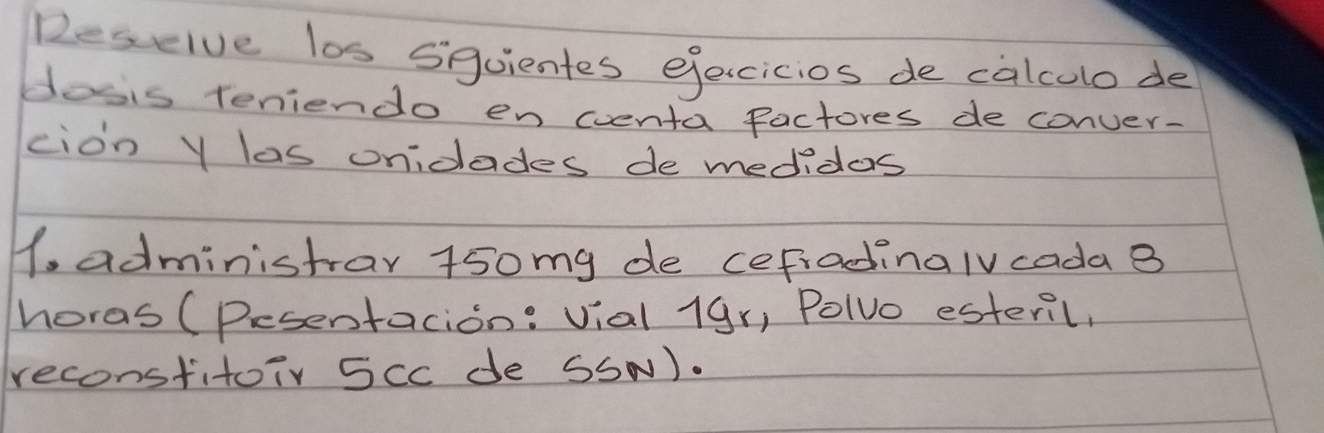 Resuelve los siguientes ejercicios de cálculo de
dosis teniendo en cuenta factores de conver-
ción y las unidades de medidas
1. administrar 750mg de cefradina IV cada 8
horas (Presentación: Vial 1gr, Polvo esteril,
reconstituir 5cc de SSN).